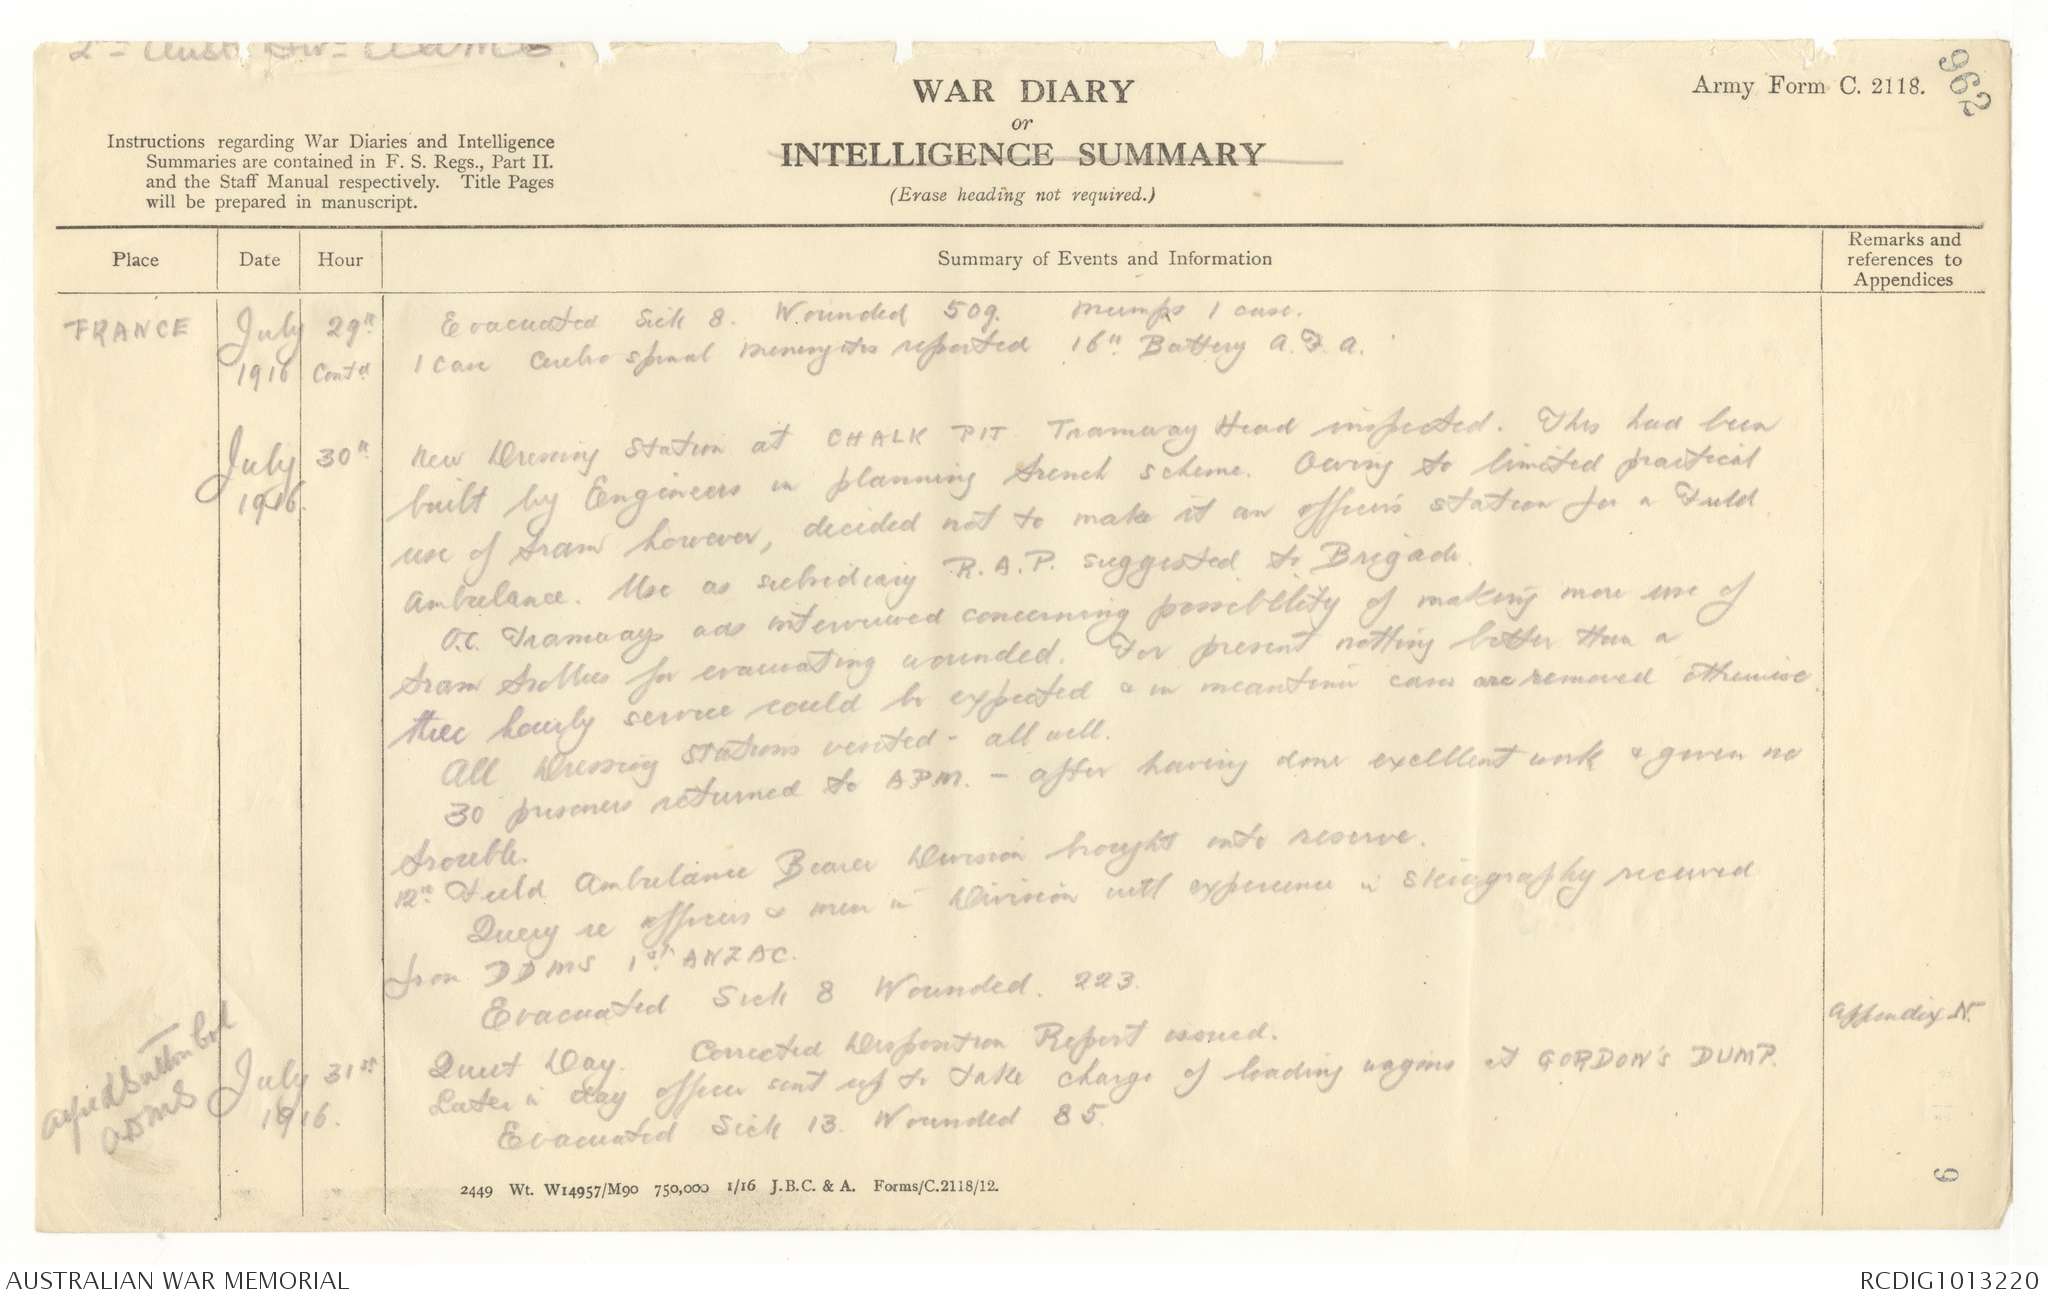 2nd Aust. Divn AAMC.
962
WAR DIARY
or
INTELLIGENCE SUMMARY
(Erase heading not required.)
Army Form C. 2118.
Instructions regarding War Diaries and Intelligence
Summaries are contained in F. S. Regs., Part II.
and the Staff Manual respectively. Title Pages
will be prepared in manuscript.
Place
Date
Hour
Summary of Events and Information
Remarks and
references to
Appendices
FRANCE
July 29th
1916 Contd
Evacuated Sick 8. Wounded 509. Mumps 1 case.
1 case cerebro spinal meningitis reported 16th Battery A.F.A.
July 30th
1916.
New Dressing Station at CHALK PIT Tramway Head inspected. This had been
built by Engineers in planning trench scheme. Owing to limited practical
use of tram however, decided not to make it an officer's station for a Field
Ambulance. Use as subsidiary R.A.P. suggested to Brigade.
O.C. Tramways was interviewed concerning possibility of making more use of
tram trollies for evacuating wounded. For present nothing better than a
three hourly service could be expected & in meantime cases are removed otherwise.
All Dressing Stations visited - all well.
30 prisoners returned to APM. - after having done excellent work & given no
trouble.
12th Field Ambulance Bearer Division brought into reserve.
Query re officers & men in Division with experience in skiagraphy received
from DDMS 1st ANZAC.
Evacuated Sick 8 Wounded. 223.
July 31st
1916.
Quiet Day. Corrected Disposition Report issued.
Appendix N.
Later in day officer sent up to take charge of loading wagons at GORDON'S DUMP.
Evacuated Sick 13. Wounded 85.
Alfred Sutton Col
ADMS
6
2449 Wt. W14957/M90 750,000 1/16 J.B.C. & A. Forms/C.2118/12.
AUSTRALIAN WAR MEMORIAL
RCDIG1013220